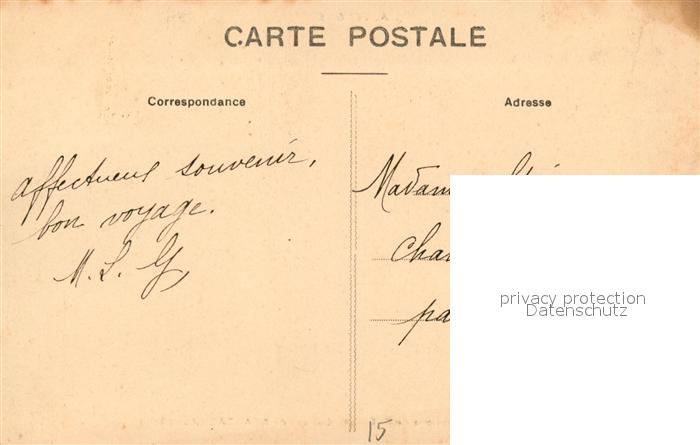 CARTE POSTALE
Correspondance
Adresse
affectueux souvenir,
bon voyage.
M. L. G,
Madam
Cha
pa
privacy protection
Datenschutz
15